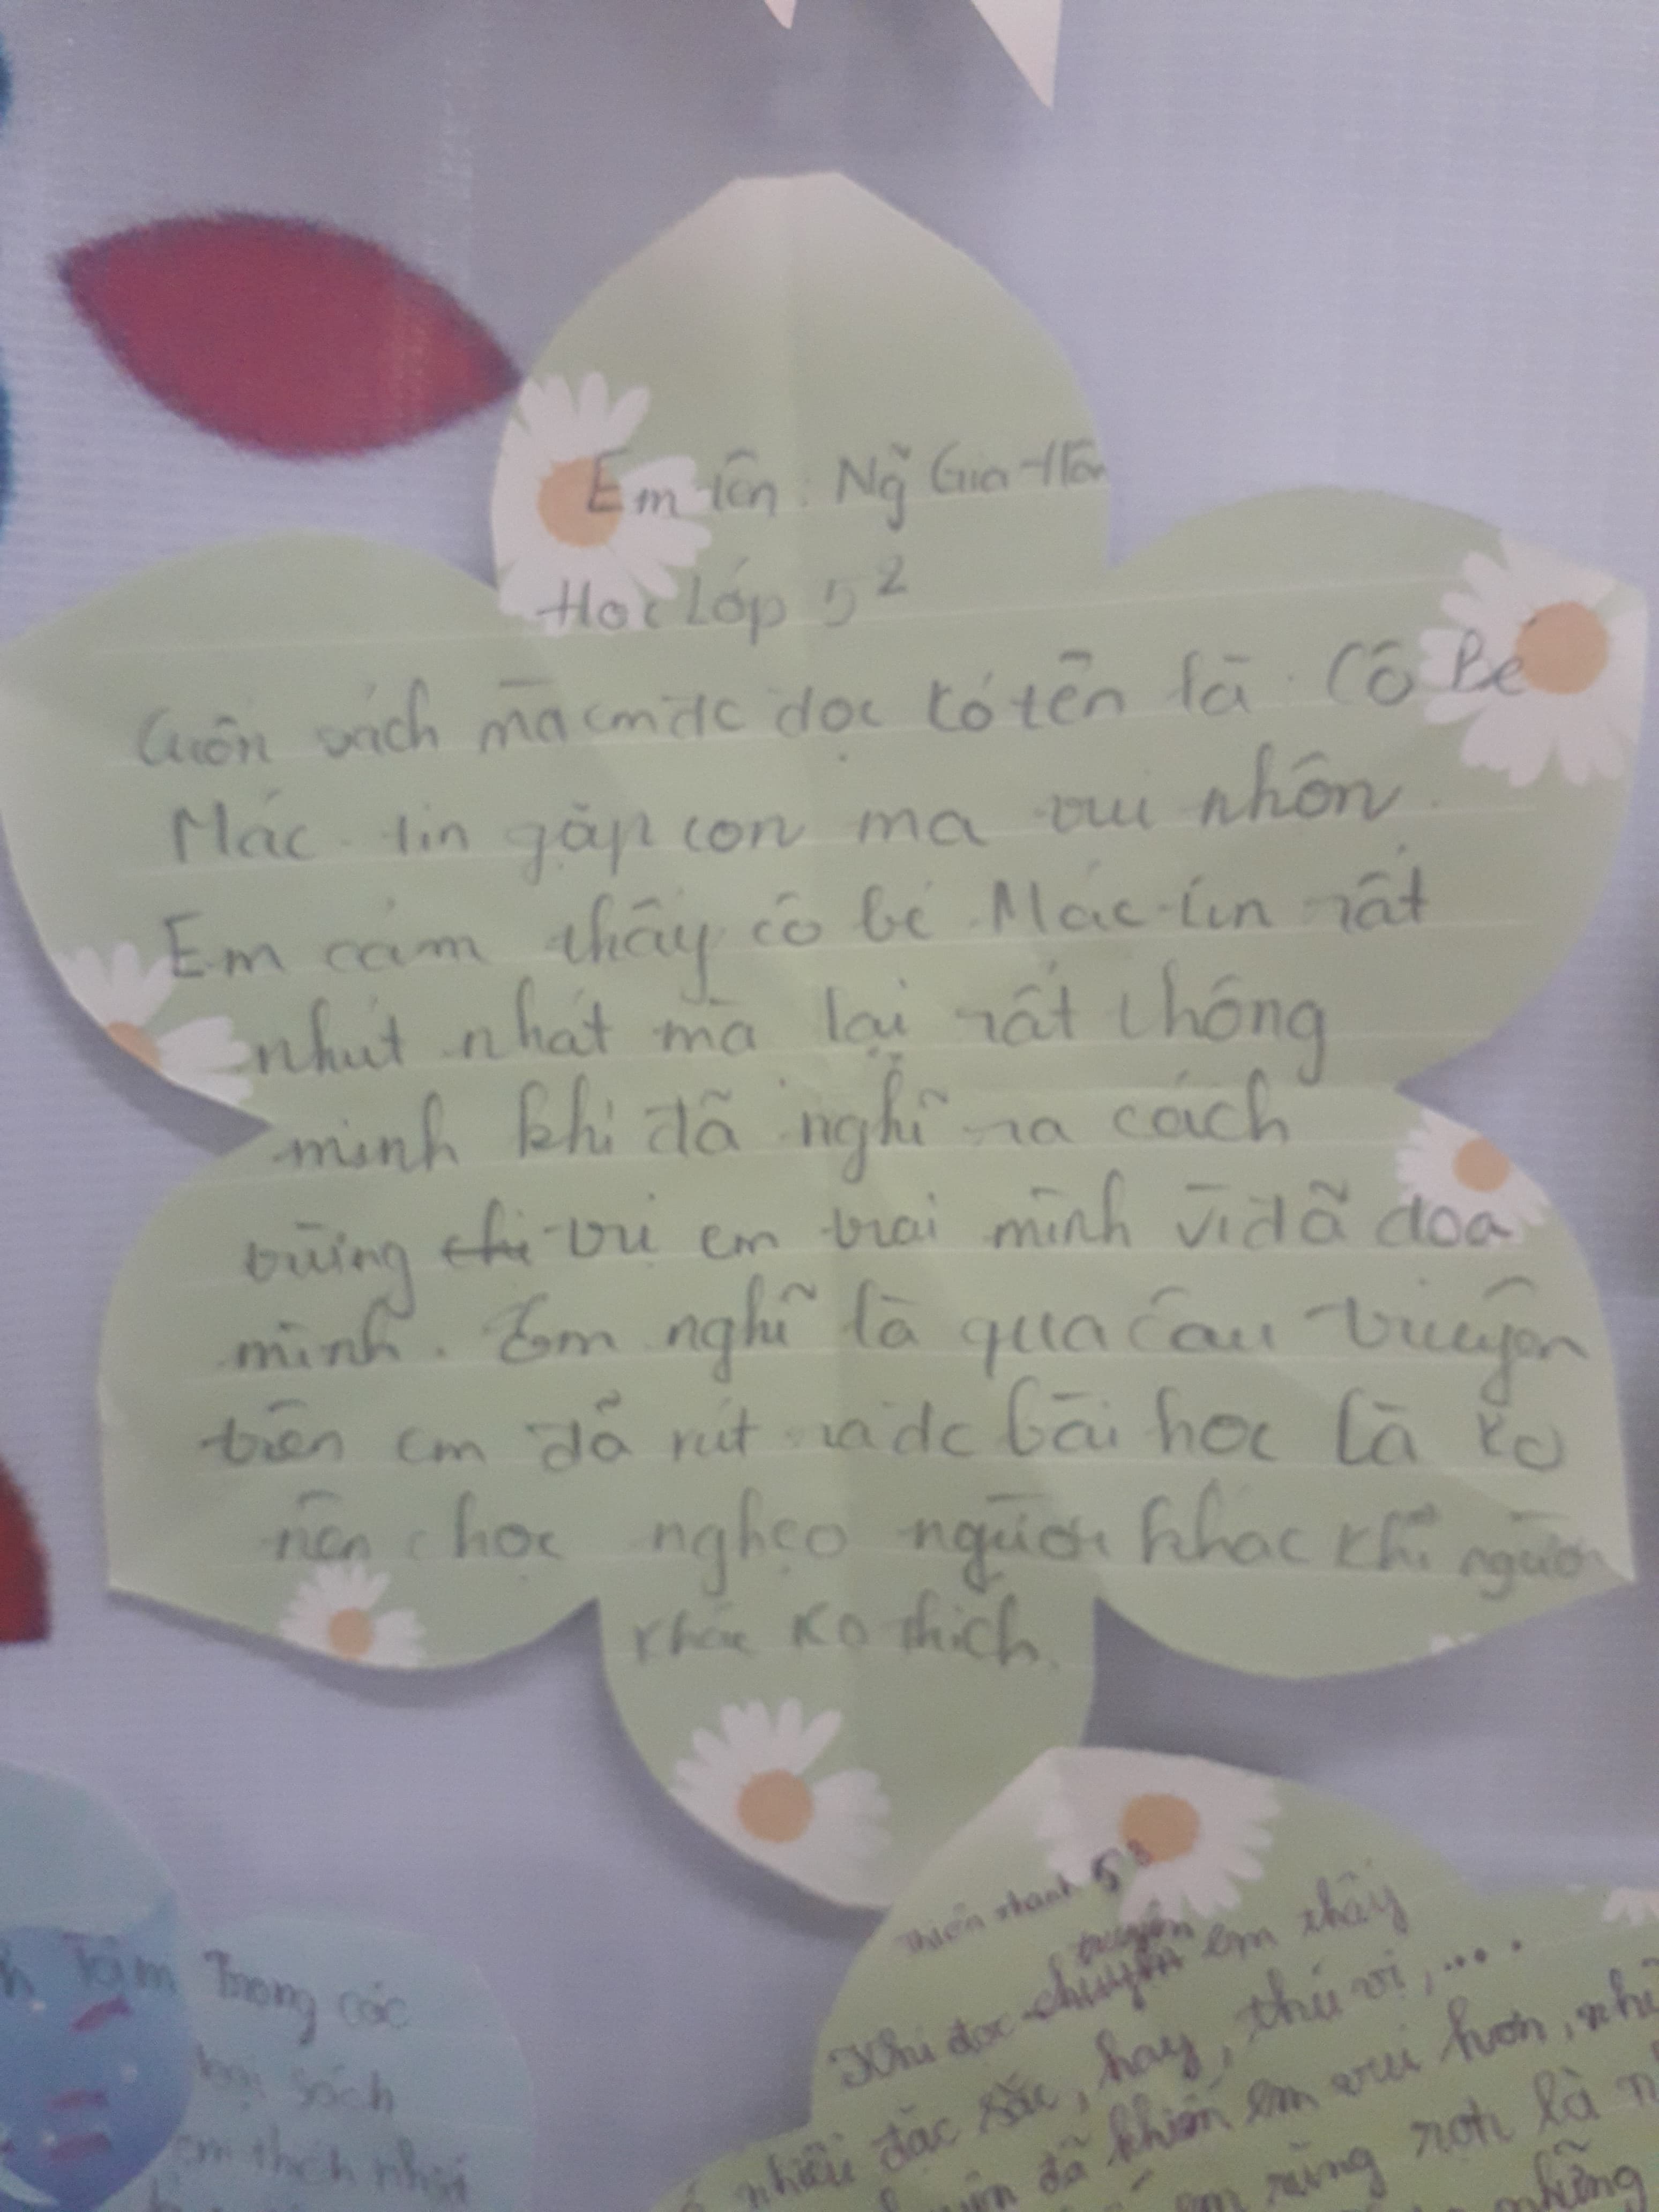 Em tên: Ng̃ Gia Hân
Học Lớp 5²
Cuốn sách mà em đc đọc có tên là Cô Bé
Mác-tin gặp con ma vui nhộn.
Em cảm thấy cô bé Mác-tin rất
nhút nhát mà lại rất thông
minh khi đã nghĩ ra cách
trừng trị em trai mình vì đã doạ
mình. Em nghĩ là qua câu truyện
trên em đã rút ra đc bài học là ko
nên chọc nghẹo người khác khi người
khác ko thích.
Thiên Thanh 5³
truyện
Khi đọc chuyện em thấy
nhiều đặc sắc, hay, thú vị,....
đã khiến em vui hơn,
em rằng nơi là
những
Tâm Trong các
loại sách
em thích nhất